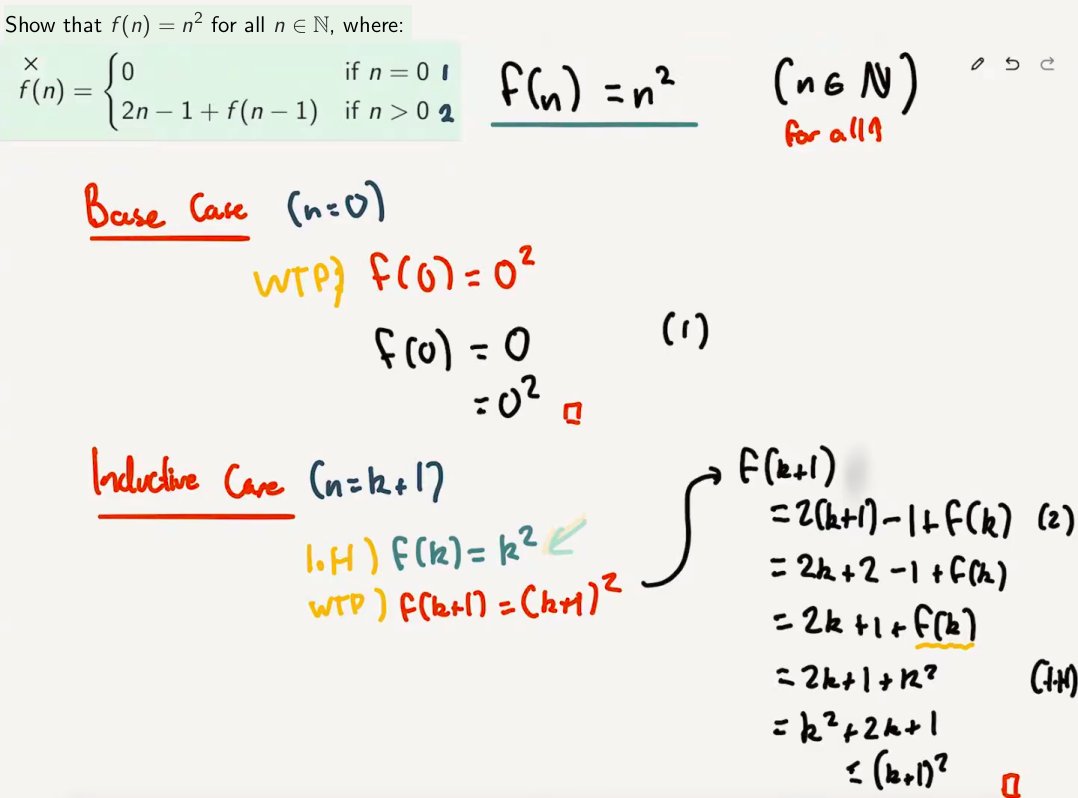 Show that f(n) = n² for all n ∈ ℕ, where:
×
f(n) = { 0 if n = 0 1
2n − 1 + f(n − 1) if n > 0 2
f(n) = n² (n ∈ ℕ)
for all↑
Base Case (n=0)
WTP} f(0) = 0²
f(0) = 0 (1)
= 0² □
Inductive Case (n=k+1)
I.H) f(k) = k²
WTP) f(k+1) = (k+1)²
f(k+1)
= 2(k+1) − 1 + f(k) (2)
= 2k + 2 − 1 + f(k)
= 2k + 1 + f(k)
= 2k + 1 + k² (I.H)
= k² + 2k + 1
= (k+1)² □